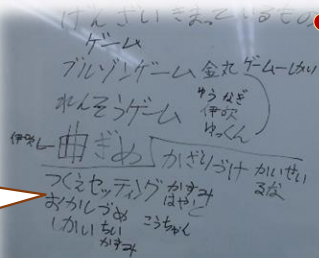 げんざいきまっているもの
ゲーム
ブルゾンゲーム 金丸 ゲームーしかい
ゆうなぎ
伊吹
ゆっくん
れんそうゲーム
伊吹ー曲ぎめ
かざりづけ かいせい
るな
つくえセッティング かすみ
はやと
おかしづめ こうちゃん
しかい ちい
かすみ